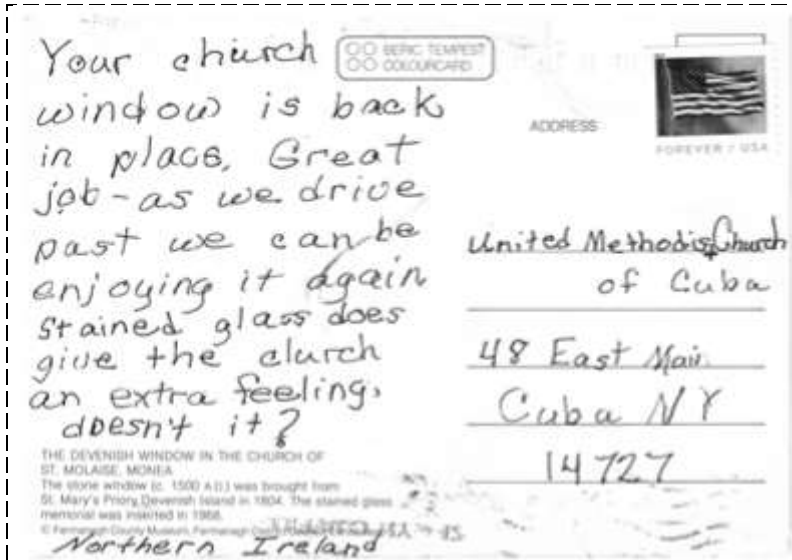 Your church
window is back
in place. Great
job - as we drive
past we can be
enjoying it again
stained glass does
give the clurch
an extra feeling,
doesn't it?
THE DEVENISH WINDOW IN THE CHURCH OF
ST. MOLAISE, MONEA
The stone window (c. 1500 A.D.) was brought from
St. Mary's Priory, Devenish Island in 1804. The stained glass
memorial was inserted in 1968.
© Fermanagh County Museum, Fermanagh
Northern Ireland
BERIC TEMPEST
COLOURCARD
ADDRESS
FOREVER / USA
United Methodist Church
of Cuba
48 East Main
Cuba NY
14727